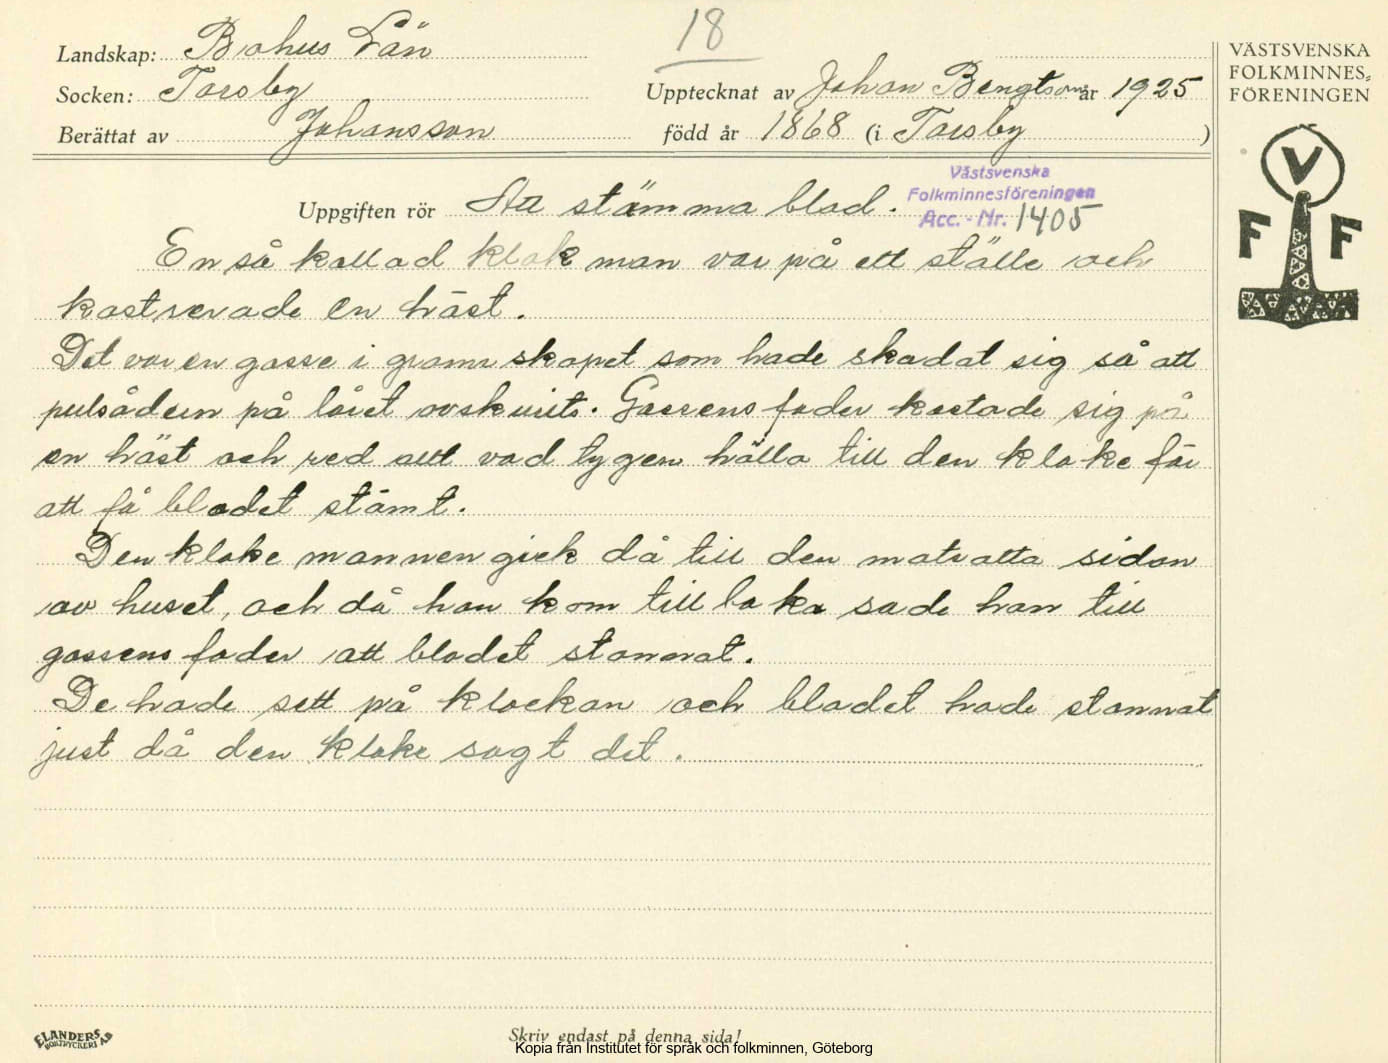 18
Landskap: Bohus Län
Socken: Torsby
Upptecknat av Johan Bengtson år 1925
Berättat av Johansson född år 1868 (i Torsby)
VÄSTSVENSKA
FOLKMINNES-
FÖRENINGEN
V
F F
Västsvenska
Folkminnesföreningen
Acc. - Nr. 1405
Uppgiften rör Att stämma blod.
En så kallad klok man var på ett ställe och
kastrerade en häst.
Det var en gosse i grannskapet som hade skadat sig så att
pulsådern på låret avskurits. Gossens fader kastade sig på
en häst och red allt vad tygen hålla till den kloke för
att få blodet stämt.
Den kloke mannen gick då till den motsatta sidan
av huset, och då han kom tillbaka sade han till
gossens fader att blodet stannat.
De hade sett på klockan och blodet hade stannat
just då den kloke sagt det.
ELANDERS
BOKTRYCKERI A.B
Skriv endast på denna sida!
Kopia från Institutet för språk och folkminnen, Göteborg